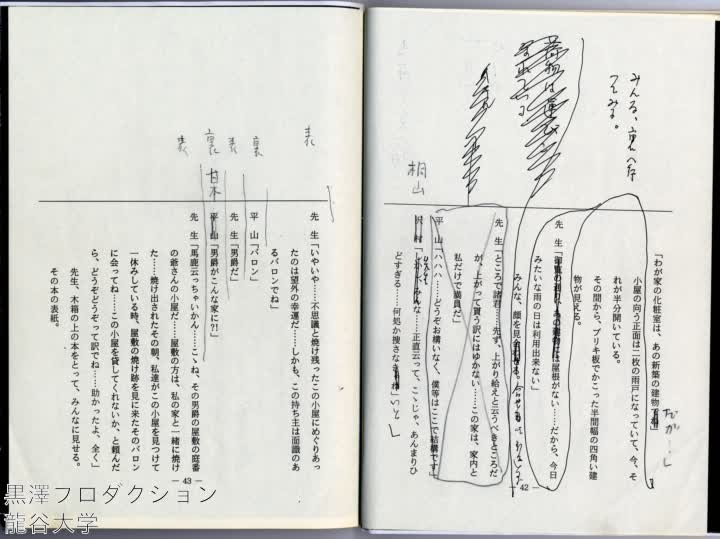 みんな、裏へ
てみる。
桐山
「わが家の化粧室は、あの新築の建物
だが…」
小屋の向う正面は二枚の雨戸になっていて、今、そ
れが半分開いている。
その間から、ブリキ板でかこった半間幅の四角い建
物が見える。
先 生
は屋根がない……だから、今日
みたいな雨の日は利用出来ない」
みんな、顔を見合
先 生「ところで諸君……先ず、上がり給えと云うべきところだ
が、上がって貰う訳にはゆかない……この家は、家内と
私だけで満員だ」
平 山「ハハハ……どうぞお構いなく、僕等はここで結構です」
沢 村「
……正直云って、こゝじゃ、あんまりひ
どすぎる……何処か捜さな
いと」
― 42 ―
表
裏
表
裏
表
甘木
先 生「いやいや……不思議と焼け残ったこの小屋にめぐりあっ
たのは望外の幸運だ……しかも、この持ち主は面識のあ
るバロンでね」
平 山「バロン」
先 生「男爵だ」
平 山「男爵がこんな家に?!」
先 生「馬鹿云っちゃいかん……こゝね、その男爵の屋敷の庭番
の爺さんの小屋だ……屋敷の方は、私の家と一緒に焼け
た……焼け出されたその朝、私達がこの小屋を見つけて
一休みしている時、屋敷の焼け跡を見に来たそのバロン
に会ってね……この小屋を貸してくれないか、と頼んだ
ら、どうぞどうぞって訳でね……助かったよ、全く」
先生、木箱の上の本をとって、みんなに見せる。
その本の表紙。
― 43 ―
黒澤プロダクション
龍谷大学